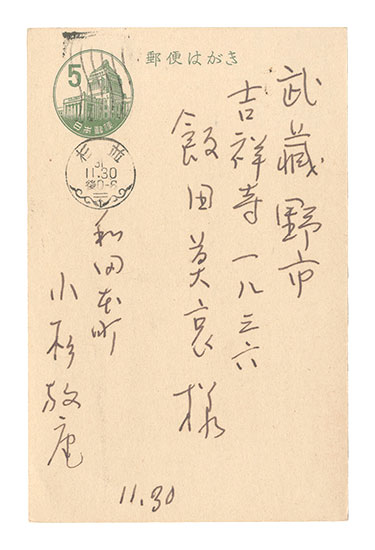 郵便はがき
5
日本郵便
杉並
31
11.30
後0-6
武蔵野市
吉祥寺一八三六
飯田莫哀様
和田本町
小杉放庵
11.30